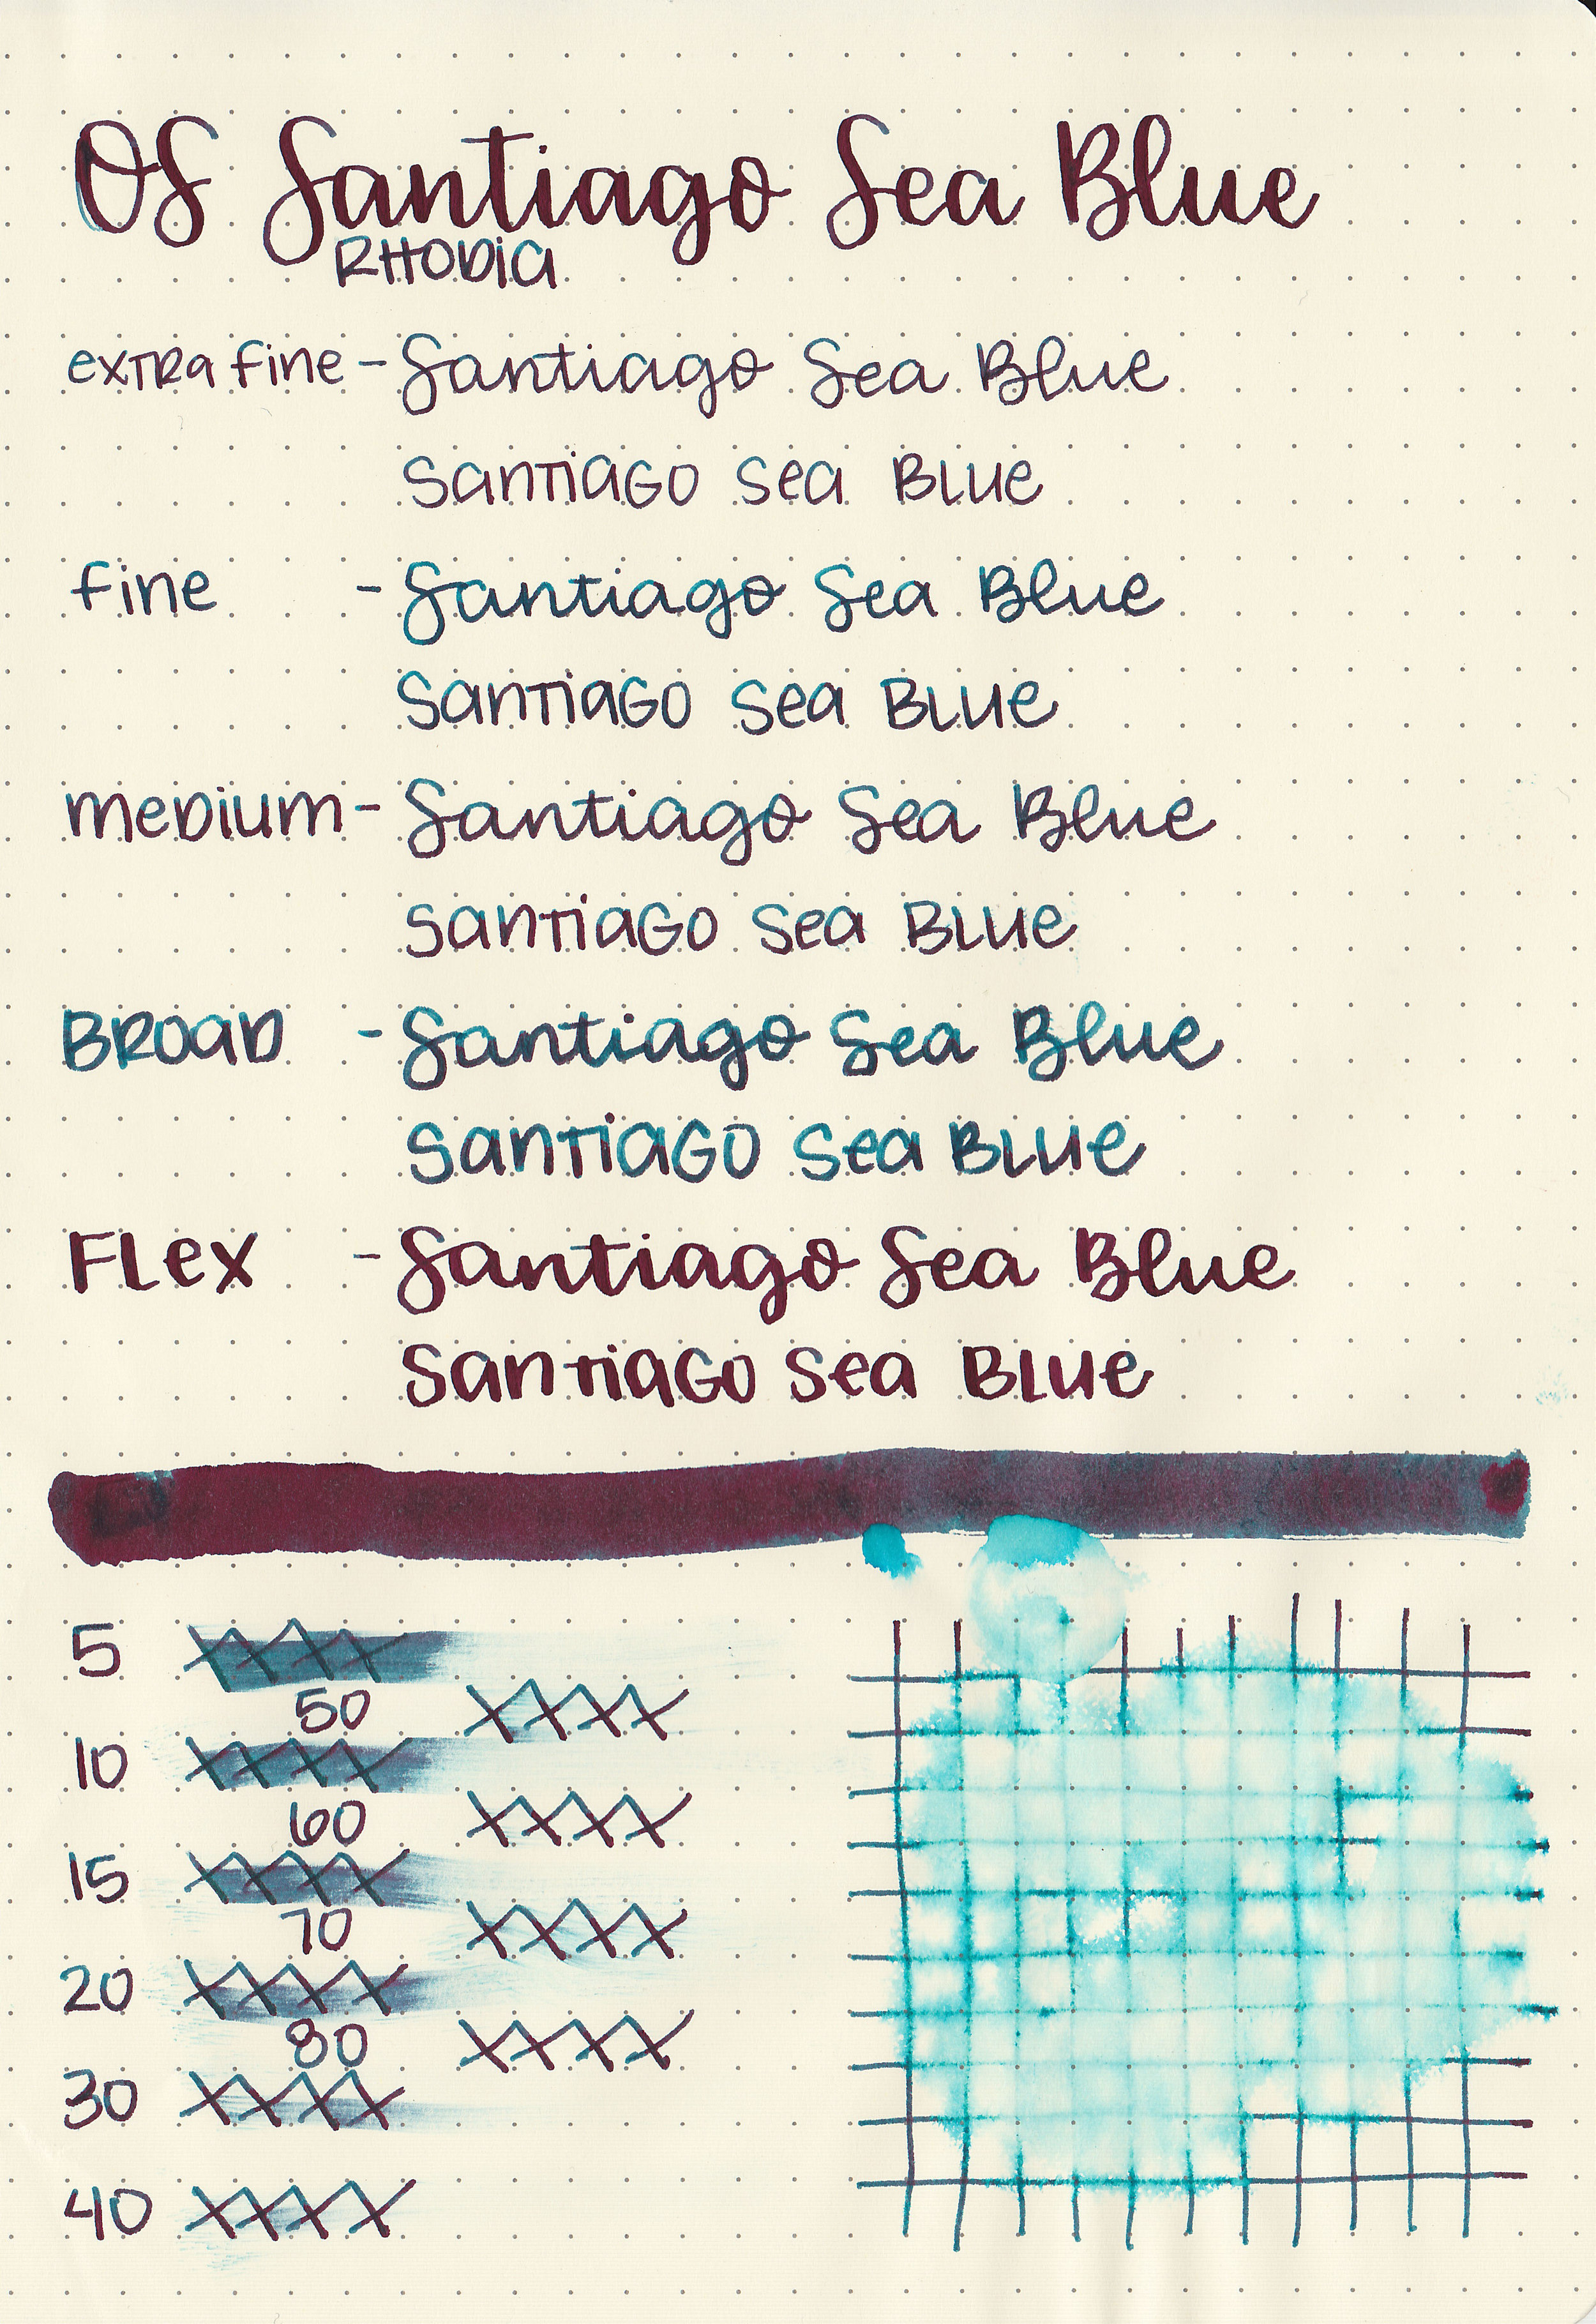 OS Santiago Sea Blue
RHODIA
extra fine - Santiago Sea Blue
Santiago Sea Blue
fine - Santiago Sea Blue
Santiago Sea Blue
medium - Santiago Sea Blue
Santiago Sea Blue
Broad - Santiago Sea Blue
Santiago Sea Blue
Flex - Santiago Sea Blue
Santiago Sea Blue
5 XXXX
50 XXXX
10 XXXX
60 XXXX
15 XXXX
70 XXXX
20 XXXX
80 XXXX
30 XXXX
40 XXXX